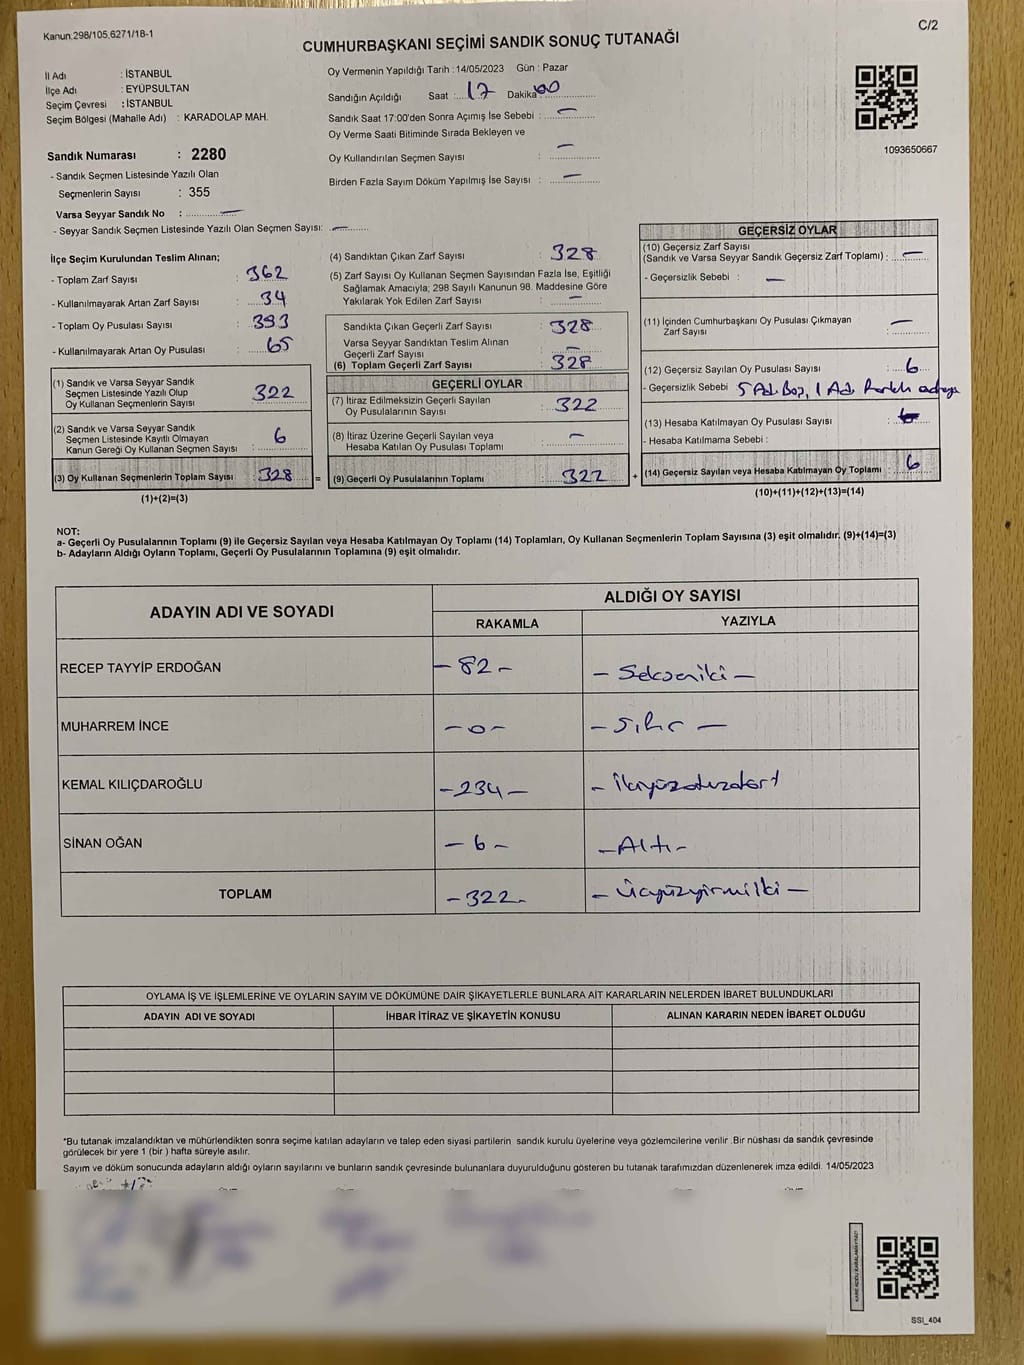 Kanun.298/105,6271/18-1
C/2
CUMHURBAŞKANI SEÇİMİ SANDIK SONUÇ TUTANAĞI
İl Adı : İSTANBUL
İlçe Adı : EYÜPSULTAN
Seçim Çevresi : İSTANBUL
Seçim Bölgesi (Mahalle Adı) : KARADOLAP MAH.
Sandık Numarası : 2280
- Sandık Seçmen Listesinde Yazılı Olan
Seçmenlerin Sayısı : 355
Varsa Seyyar Sandık No : —
- Seyyar Sandık Seçmen Listesinde Yazılı Olan Seçmen Sayısı: —
Oy Vermenin Yapıldığı Tarih : 14/05/2023 Gün : Pazar
Sandığın Açıldığı Saat : 17 Dakika 00
Sandık Saat 17:00'den Sonra Açımış İse Sebebi : —
Oy Verme Saati Bitiminde Sırada Bekleyen ve
Oy Kullandırılan Seçmen Sayısı : —
Birden Fazla Sayım Döküm Yapılmış İse Sayısı : —
1093650667
İlçe Seçim Kurulundan Teslim Alınan;
- Toplam Zarf Sayısı : 362
- Kullanılmayarak Artan Zarf Sayısı : 34
- Toplam Oy Pusulası Sayısı : 393
- Kullanılmayarak Artan Oy Pusulası : 65
(1) Sandık ve Varsa Seyyar Sandık
Seçmen Listesinde Yazılı Olup
Oy Kullanan Seçmenlerin Sayısı 322
(2) Sandık ve Varsa Seyyar Sandık
Seçmen Listesinde Kayıtlı Olmayan
Kanun Gereği Oy Kullanan Seçmen Sayısı : 6
(3) Oy Kullanan Seçmenlerin Toplam Sayısı : 328 =
(1)+(2)=(3)
(4) Sandıktan Çıkan Zarf Sayısı : 328
(5) Zarf Sayısı Oy Kullanan Seçmen Sayısından Fazla İse, Eşitliği
Sağlamak Amacıyla; 298 Sayılı Kanunun 98. Maddesine Göre
Yakılarak Yok Edilen Zarf Sayısı : —
Sandıkta Çıkan Geçerli Zarf Sayısı : 328
Varsa Seyyar Sandıktan Teslim Alınan
Geçerli Zarf Sayısı : —
(6) Toplam Geçerli Zarf Sayısı : 328
GEÇERLİ OYLAR
(7) İtiraz Edilmeksizin Geçerli Sayılan
Oy Pusulalarının Sayısı : 322
(8) İtiraz Üzerine Geçerli Sayılan veya
Hesaba Katılan Oy Pusulası Toplamı : —
(9) Geçerli Oy Pusulalarının Toplamı : 322 +
GEÇERSİZ OYLAR
(10) Geçersiz Zarf Sayısı
(Sandık ve Varsa Seyyar Sandık Geçersiz Zarf Toplamı) : —
- Geçersizlik Sebebi : —
(11) İçinden Cumhurbaşkanı Oy Pusulası Çıkmayan
Zarf Sayısı : —
(12) Geçersiz Sayılan Oy Pusulası Sayısı : 6
- Geçersizlik Sebebi 5 Ad. Boş, 1 Ad.
(13) Hesaba Katılmayan Oy Pusulası Sayısı :
- Hesaba Katılmama Sebebi :
(14) Geçersiz Sayılan veya Hesaba Katılmayan Oy Toplamı : 6
(10)+(11)+(12)+(13)=(14)
NOT:
a- Geçerli Oy Pusulalarının Toplamı (9) ile Geçersiz Sayılan veya Hesaba Katılmayan Oy Toplamı (14) Toplamları, Oy Kullanan Seçmenlerin Toplam Sayısına (3) eşit olmalıdır. (9)+(14)=(3)
b- Adayların Aldığı Oyların Toplamı, Geçerli Oy Pusulalarının Toplamına (9) eşit olmalıdır.
ADAYIN ADI VE SOYADI
ALDIĞI OY SAYISI
RAKAMLA YAZIYLA
RECEP TAYYİP ERDOĞAN — 82 — — Sekseniki —
MUHARREM İNCE — 0 — — Sıfır —
KEMAL KILIÇDAROĞLU — 234 — — İkiyüzotuzdört
SİNAN OĞAN — 6 — — Altı —
TOPLAM — 322 — — Üçyüzyirmiİki —
OYLAMA İŞ VE İŞLEMLERİNE VE OYLARIN SAYIM VE DÖKÜMÜNE DAİR ŞİKAYETLERLE BUNLARA AİT KARARLARIN NELERDEN İBARET BULUNDUKLARI
ADAYIN ADI VE SOYADI İHBAR İTİRAZ VE ŞİKAYETİN KONUSU ALINAN KARARIN NEDEN İBARET OLDUĞU
*Bu tutanak imzalandıktan ve mühürlendikten sonra seçime katılan adayların ve talep eden siyasi partilerin sandık kurulu üyelerine veya gözlemcilerine verilir .Bir nüshası da sandık çevresinde
görülecek bir yere 1 (bir ) hafta süreyle asılır.
Sayım ve döküm sonucunda adayların aldığı oyların sayılarını ve bunların sandık çevresinde bulunanlara duyurulduğunu gösteren bu tutanak tarafımızdan düzenlenerek imza edildi. 14/05/2023
SSI_404